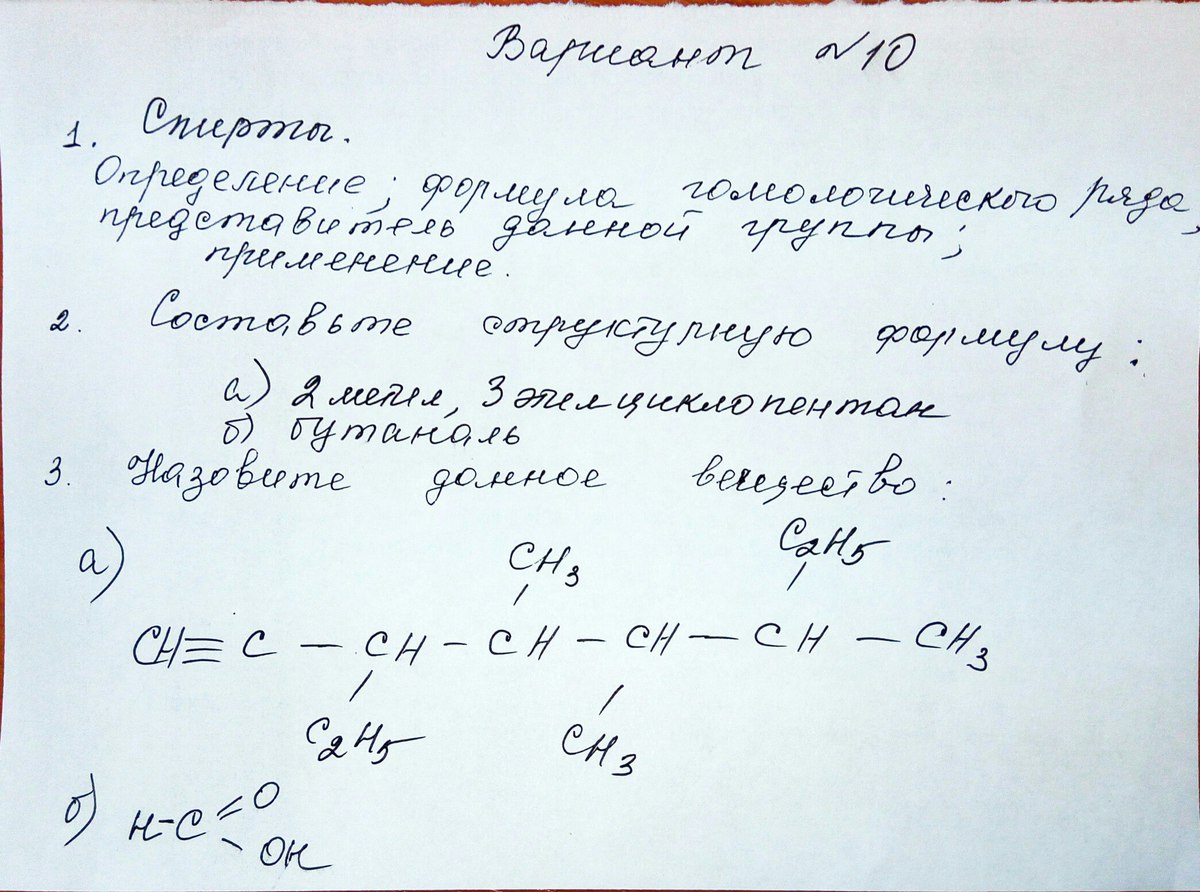 Вариант №10
1. Спирты.
Определение; формула гомологического ряда,
представитель данной группы;
применение.
2. Составьте структурную формулу:
а) 2 метил, 3 этилциклопентан
б) бутаналь
3. Назовите данное вещество:
а)
CH3 C2H5
CH≡C — CH – CH – CH — CH — CH3
C2H5 CH3
б) H-C=O
OH